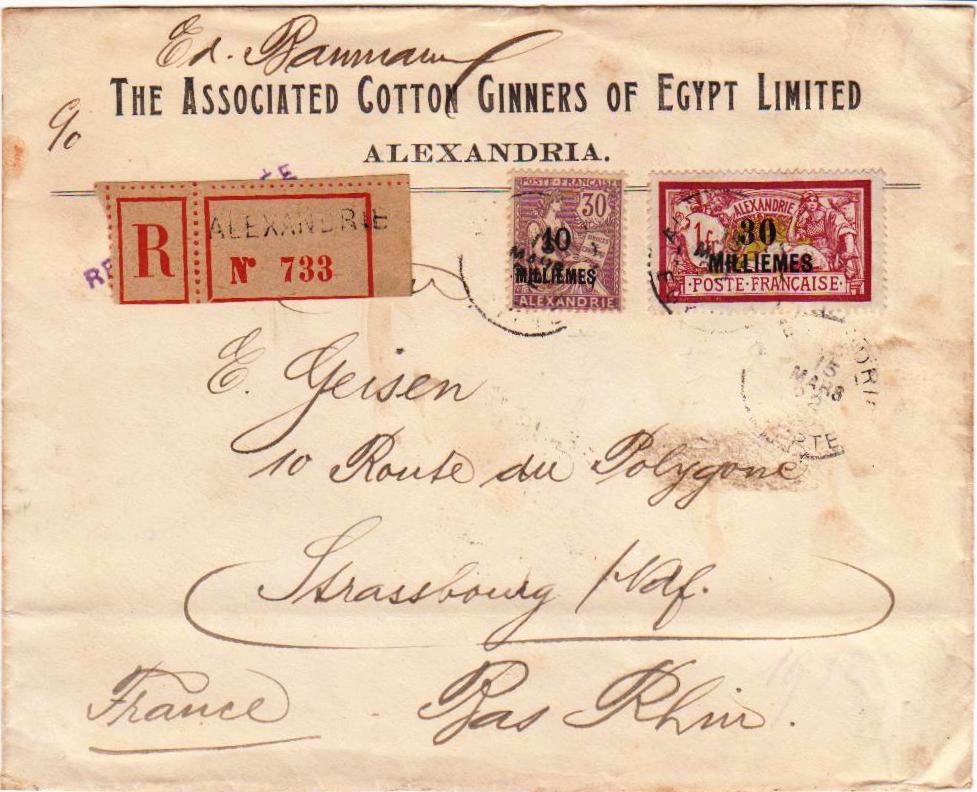 Ed. Baumann
c/o THE ASSOCIATED COTTON GINNERS OF EGYPT LIMITED
ALEXANDRIA.
R
ALEXANDRIE
Nº 733
POSTE FRANÇAISE
30
10
MILLIÈMES
ALEXANDRIE
ALEXANDRIE
1 fr
30
MILLIÈMES
POSTE FRANÇAISE
E. Geisen
15
MARS
10 Route du Polygone
Strassbourg /Ndf.
France Bas Rhin.